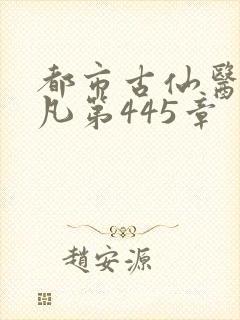 都市古仙醫
凡第445章
趙安源